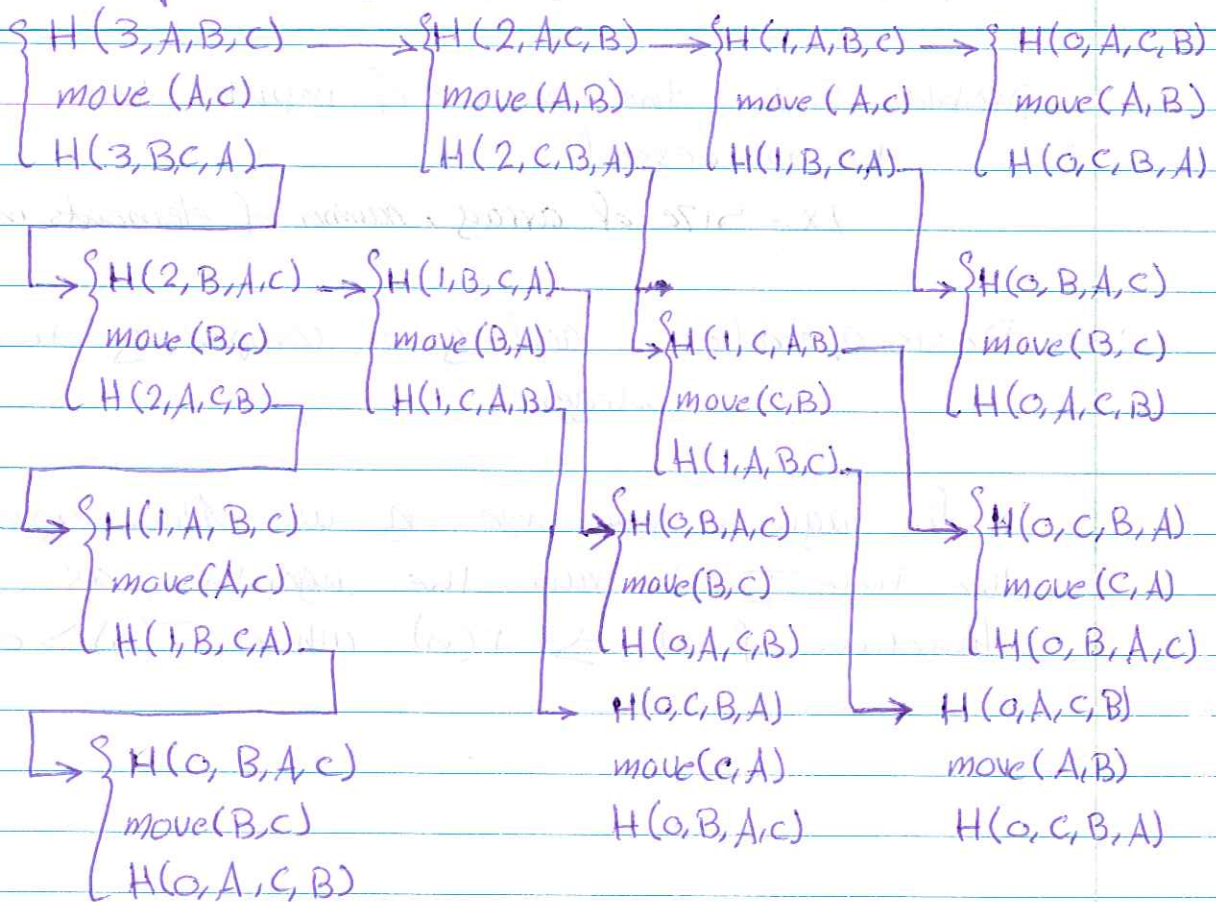 H(3,A,B,C) → H(2,A,C,B) → H(1,A,B,C) → H(0,A,C,B)
move(A,C) move(A,B) move(A,C) move(A,B)
H(3,B,C,A) H(2,C,B,A) H(1,B,C,A) H(0,C,B,A)
H(2,B,A,C) → H(1,B,C,A) H(0,B,A,C)
move(B,C) move(B,A) H(1,C,A,B) move(B,C)
H(2,A,C,B) H(1,C,A,B) move(C,B) H(0,A,C,B)
H(1,A,B,C)
H(1,A,B,C) H(0,B,A,C) H(0,C,B,A)
move(A,C) move(B,C) move(C,A)
H(1,B,C,A) H(0,A,C,B) H(0,B,A,C)
H(0,C,B,A) H(0,A,C,B)
H(0,B,A,C) move(C,A) move(A,B)
move(B,C) H(0,B,A,C) H(0,C,B,A)
H(0,A,C,B)